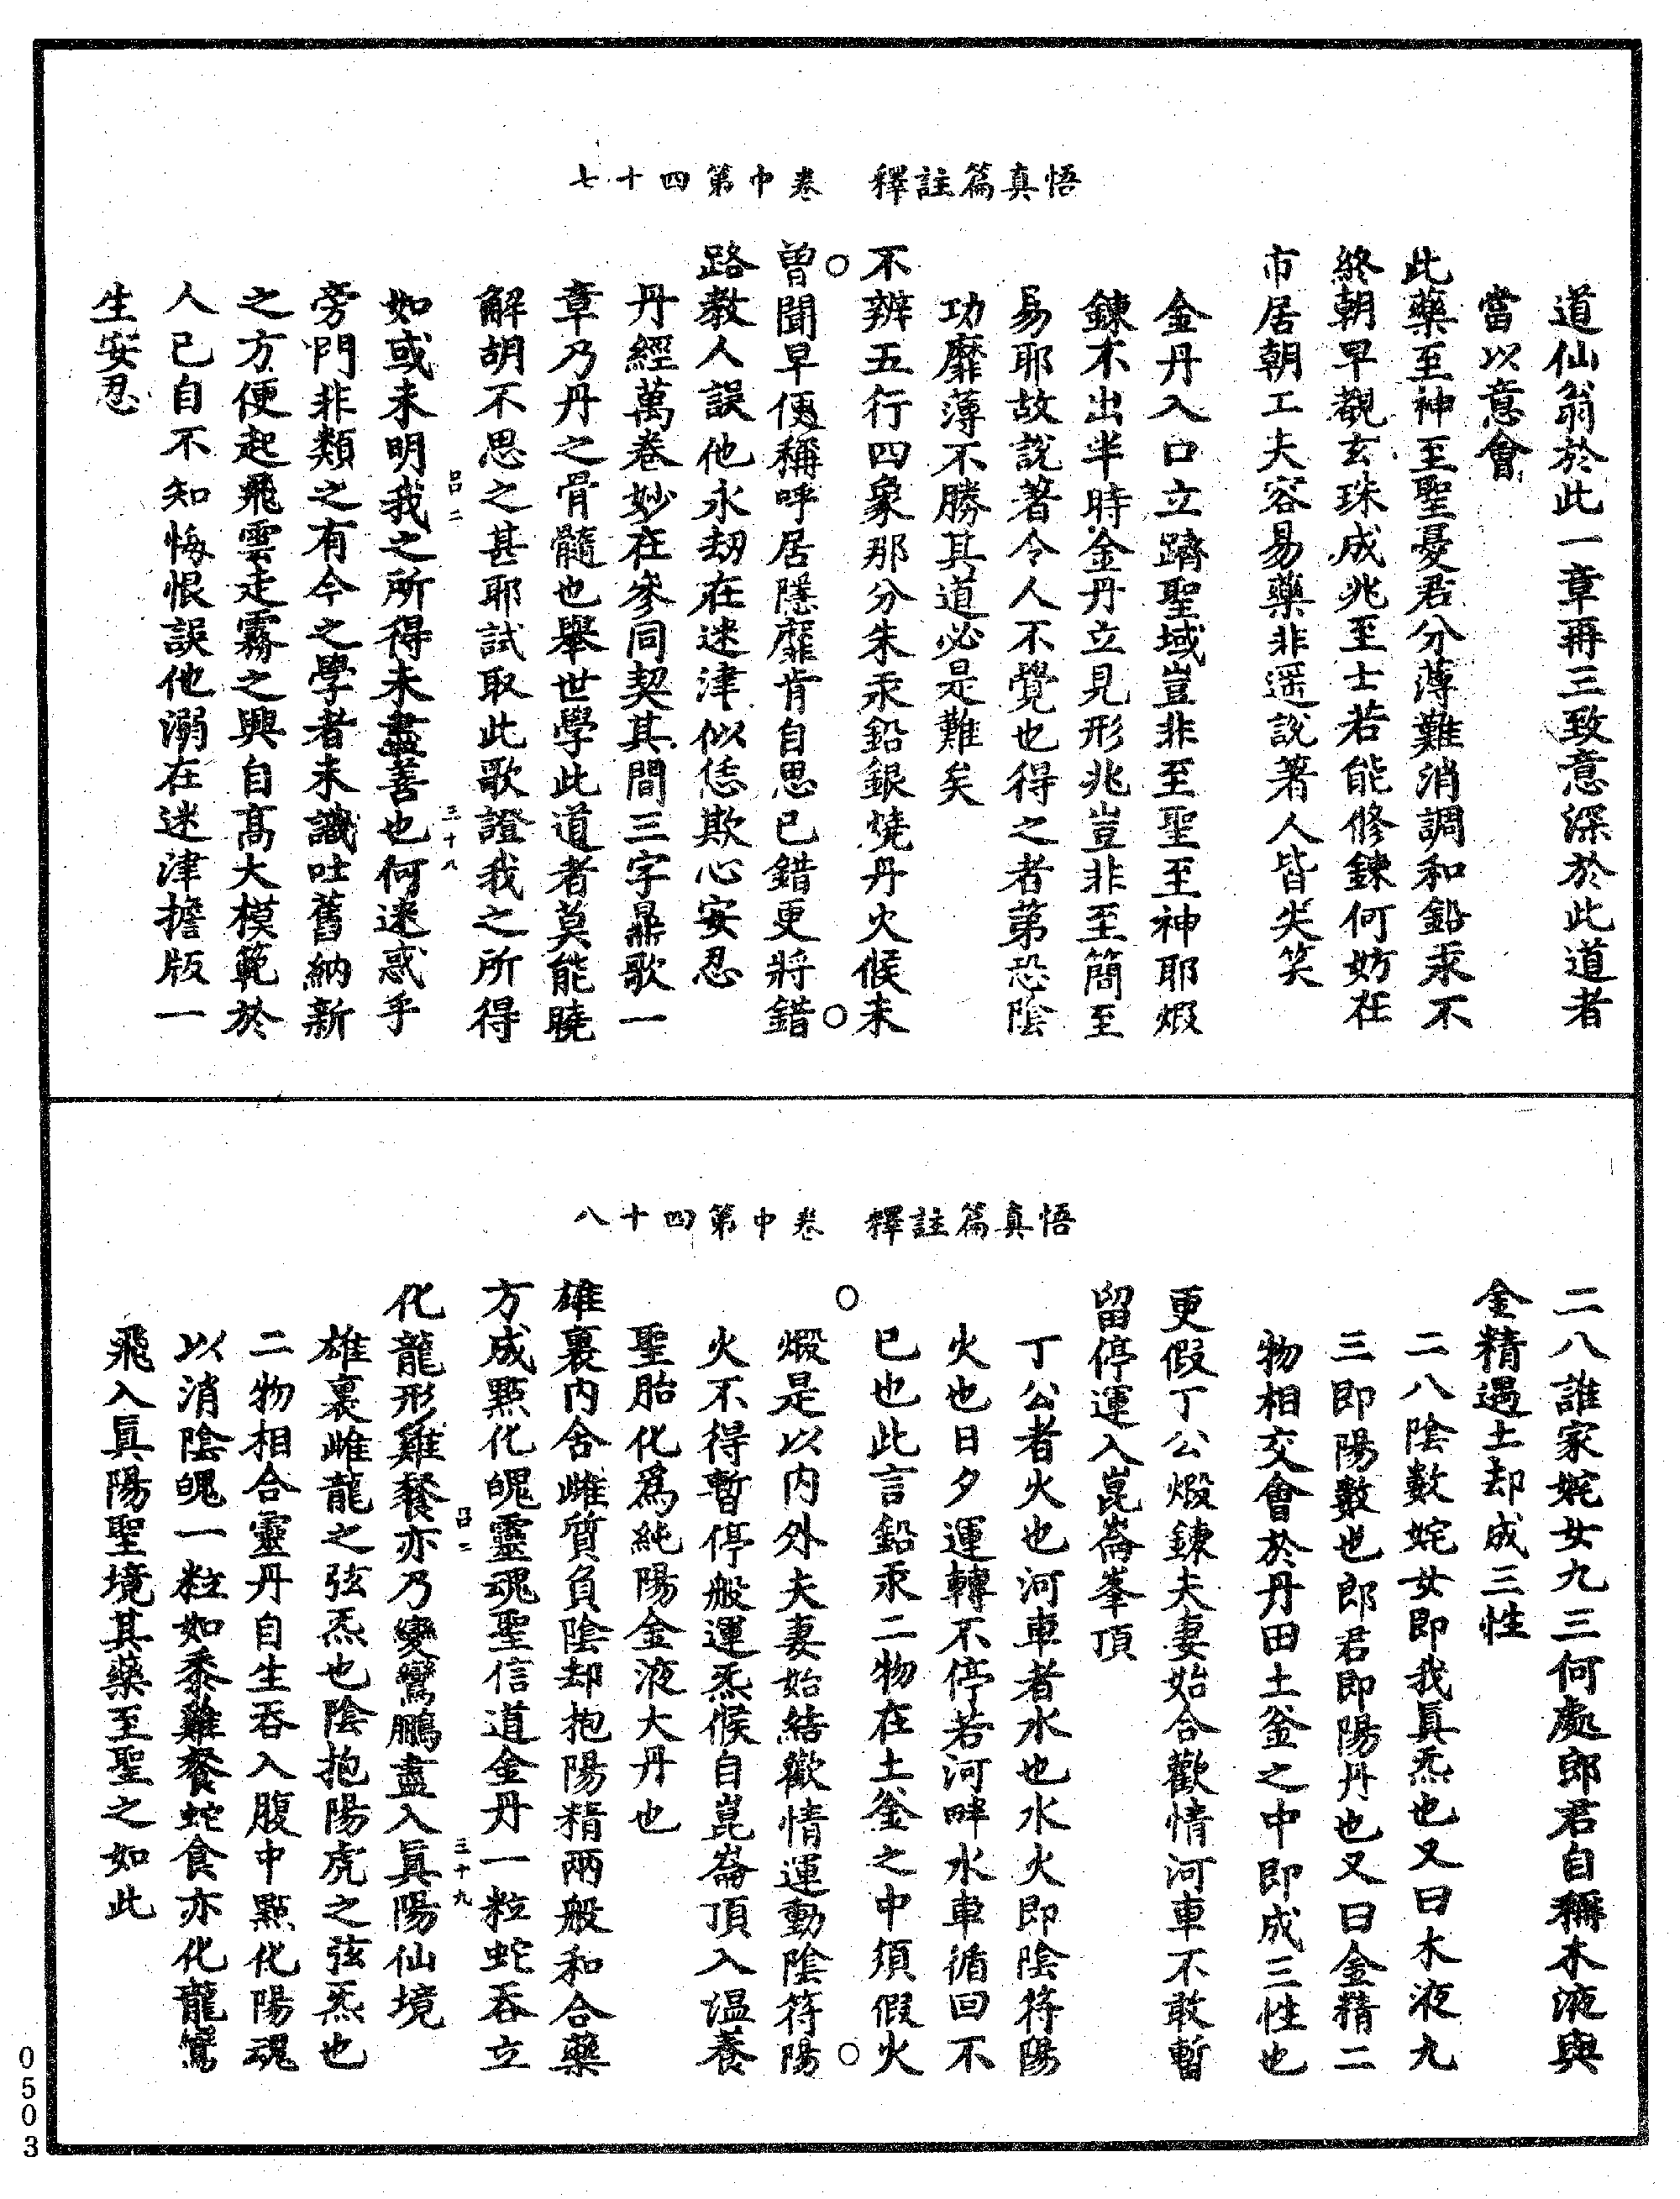 悟真篇註釋　卷中第四十七
道仙翁於此一章再三致意深於此道者
當以意會
此藥至神至聖憂君分薄難消調和鉛汞不
終朝早覩玄珠成兆至士若能修鍊何妨在
市居朝工夫容易藥非遥說著人皆失笑
金丹入口立躋聖域豈非至聖至神耶煆
鍊不出半時金丹立見形兆豈非至簡至
易耶故說著令人不覺也得之者第恐陰
功靡薄不勝其道必是難矣
不辨五行四象那分朱汞鉛銀燒丹火候未
曾聞早便稱呼居隱靡肯自思已錯更將錯
路教人誤他永劫在迷津似恁欺心安忍
丹經萬卷妙在參同契其間三字鼎歌一
章乃丹之骨髓也舉世學此道者莫能曉
解胡不思之甚耶試取此歌證我之所得
如或未明我之所得未盡善也何迷惑乎
呂二
三十八
旁門非類之有今之學者未識吐舊納新
之方便起飛雲走霧之興自高大模範於
人已自不知悔恨誤他溺在迷津擔版一
生安忍
悟真篇註釋　卷中第四十八
二八誰家姹女九三何處郎君自稱木液與
金精遇土却成三性
二八陰數姹女即我真炁也又曰木液九
三即陽數也郎君即陽丹也又曰金精二
物相交會於丹田土釜之中即成三性也
更假丁公煅鍊夫妻始合歡情河車不敢暫
留停運入崑崙峯頂
丁公者火也河車者水也水火即陰符陽
火也日夕運轉不停若河畔水車循回不
已也此言鉛汞二物在土釜之中須假火
煅是以内外夫妻始結歡情運動陰符陽
火不得暫停般運炁候自崑崙頂入溫養
聖胎化爲純陽金液大丹也
雄裏内含雌質負陰却抱陽精兩般和合藥
方成點化魄靈魂聖信道金丹一粒蛇吞立
化龍形雞餐亦乃變鸞鵬盡入真陽仙境
呂二
三十九
雄裏雌龍之弦炁也陰抱陽虎之弦炁也
二物相合靈丹自生吞入腹中點化陽魂
以消陰魄一粒如黍雞餐蛇食亦化龍鸞
飛入真陽聖境其藥至聖之如此
0503